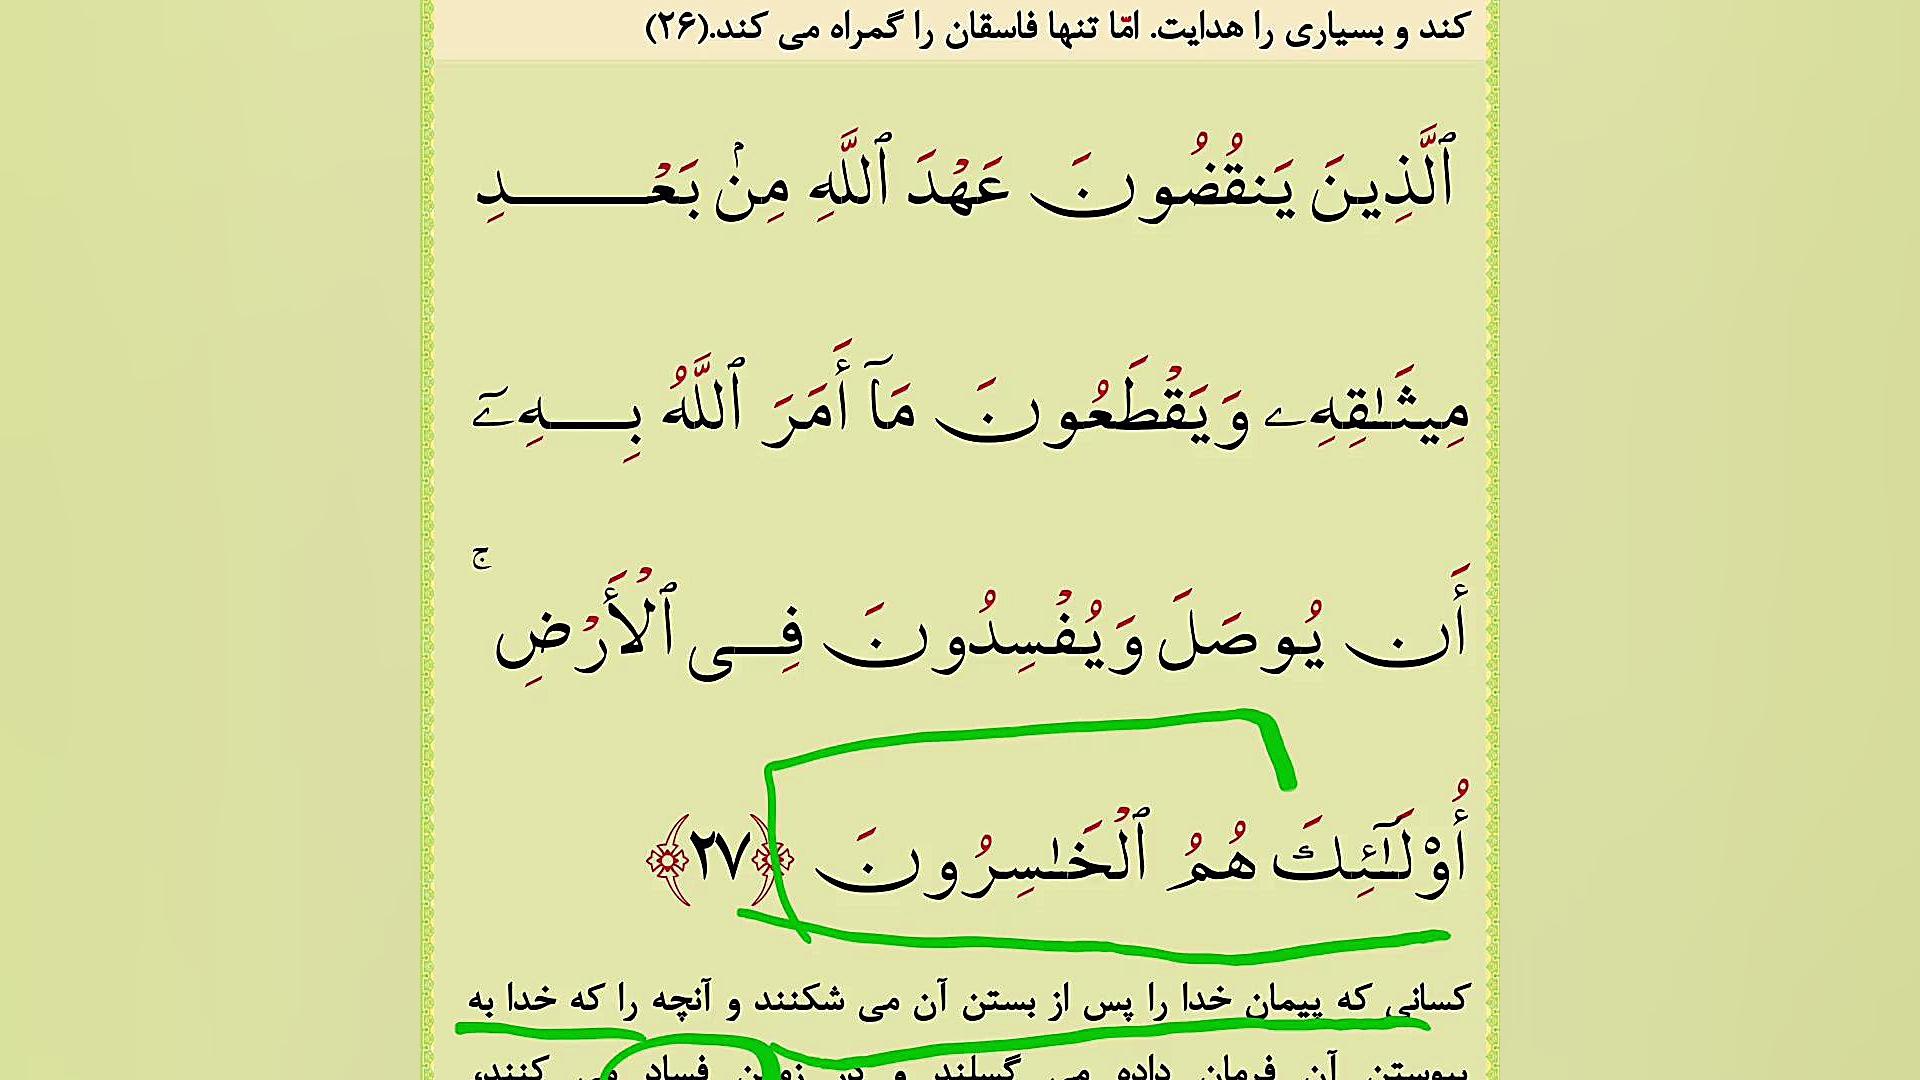 کند و بسیاری را هدایت. امّا تنها فاسقان را گمراه می کند.(۲۶)
ٱلَّذِينَ يَنقُضُونَ عَهْدَ ٱللَّهِ مِنۢ بَعْدِ
مِيثَـٰقِهِۦ وَيَقْطَعُونَ مَآ أَمَرَ ٱللَّهُ بِهِۦٓ
أَن يُوصَلَ وَيُفْسِدُونَ فِى ٱلْأَرْضِ ۚ
أُوْلَـٰٓئِكَ هُمُ ٱلْخَـٰسِرُونَ ﴿٢٧﴾
کسانی که پیمان خدا را پس از بستن آن می شکنند و آنچه را که خدا به
پیوستن آن فرمان داده می گسلند و در زمین فساد می کنند،